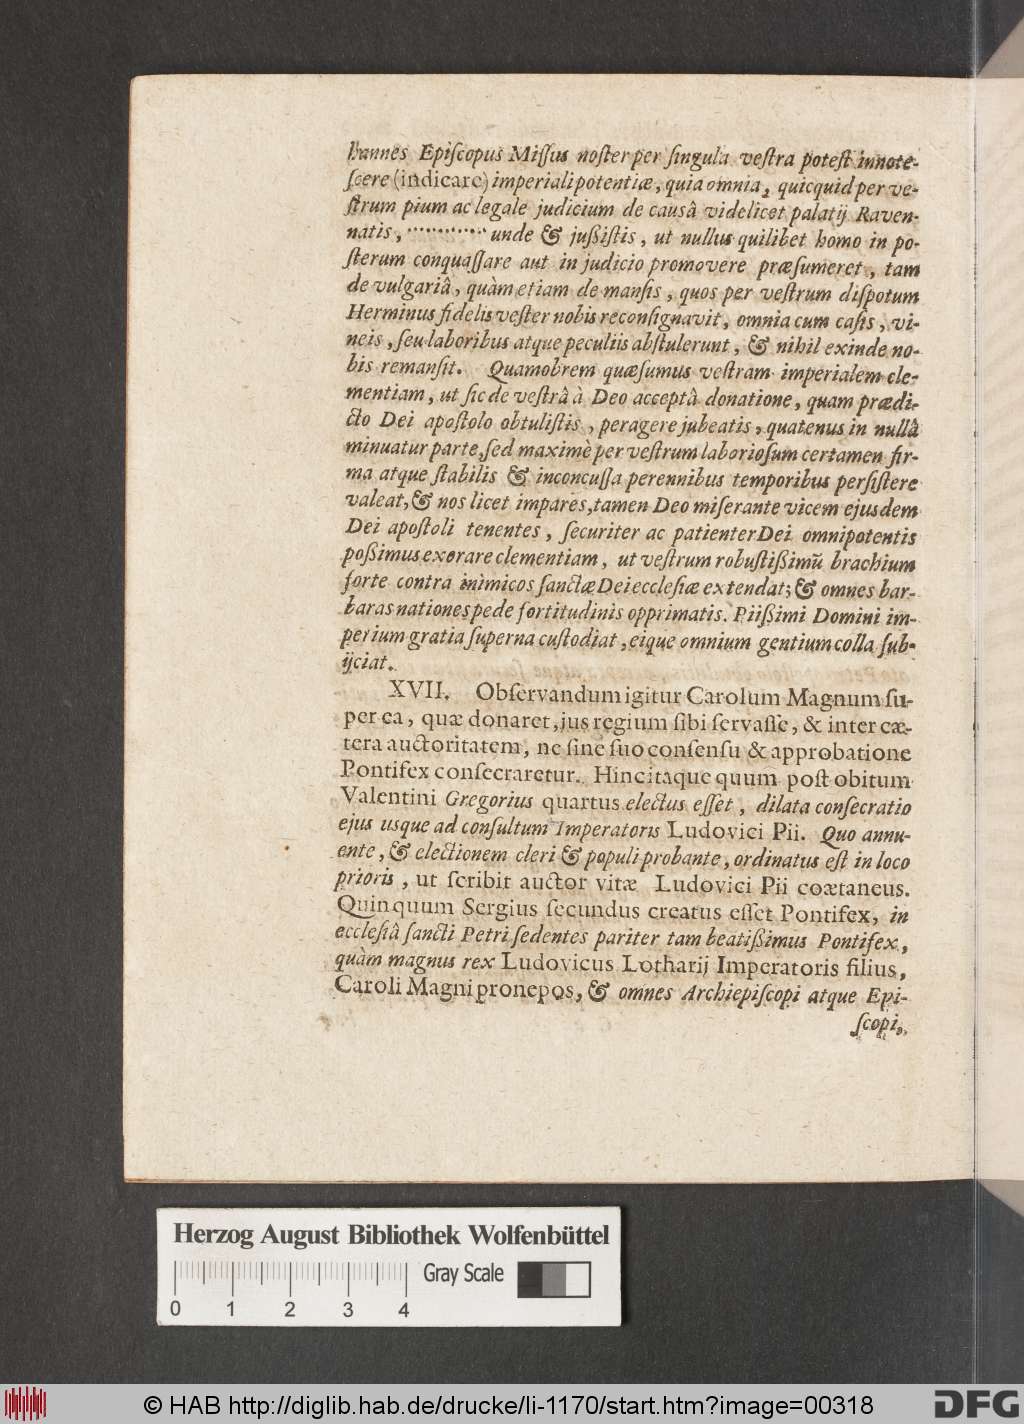 hannes Epiſcopus Miſſus noſter per ſingula veſtra poteſt innote-
ſcere (indicare) imperiali potentiæ, quia omnia, quicquid per ve-
ſtrum pium ac legale judicium de causâ videlicet palatij Raven-
natis, ············ unde & jußiſtis, ut nullus quilibet homo in po-
ſterum conquaſſare aut in judicio promovere præſumeret, tam
de vulgariâ, quàm etiam de manſis, quos per veſtrum diſpotum
Herminus fidelis veſter nobis reconſignavit, omnia cum caſis, vi-
neis, ſeu laboribus atque peculiis abſtulerunt, & nihil exinde no-
bis remanſit. Quamobrem quæſumus veſtram imperialem cle-
mentiam, ut ſic de veſtrâ à Deo acceptâ donatione, quam prædi-
cto Dei apoſtolo obtuliſtis, peragere jubeatis, quatenus in nullâ
minuatur parte, ſed maximè per veſtrum laborioſum certamen fir-
ma atque ſtabilis & inconcuſſa perennibus temporibus perſiſtere
valeat, & nos licet impares, tamen Deo miſerante vicem ejusdem
Dei apoſtoli tenentes, ſecuriter ac patienter Dei omnipotentis
poßimus exorare clementiam, ut veſtrum robuſtißimũ brachium
forte contra inimicos ſanctæ Dei eccleſiæ extendat; & omnes bar-
baras nationes pede fortitudinis opprimatis. Piißimi Domini im-
perium gratia ſuperna cuſtodiat, eique omnium gentium colla ſub-
ijciat.
XVII. Obſervandum igitur Carolum Magnum ſu-
per ea, quæ donaret, jus regium ſibi ſervaſſe, & inter cæ-
tera auctoritatem, ne ſine ſuo conſenſu & approbatione
Pontifex conſecraretur. Hinc itaque quum poſt obitum
Valentini Gregorius quartus electus eſſet, dilata conſecratio
ejus usque ad conſultum Imperatoris Ludovici Pii. Quo annu-
ente, & electionem cleri & populi probante, ordinatus eſt in loco
prioris, ut ſcribit auctor vitæ Ludovici Pii coætaneus.
Quin quum Sergius ſecundus creatus eſſet Pontifex, in
eccleſiâ ſancti Petri ſedentes pariter tam beatißimus Pontifex,
quàm magnus rex Ludovicus Lotharij Imperatoris filius,
Caroli Magni pronepos, & omnes Archiepiſcopi atque Epi-
ſcopi,
Herzog August Bibliothek Wolfenbüttel
Gray Scale
0 1 2 3 4
© HAB http://diglib.hab.de/drucke/li-1170/start.htm?image=00318
DFG